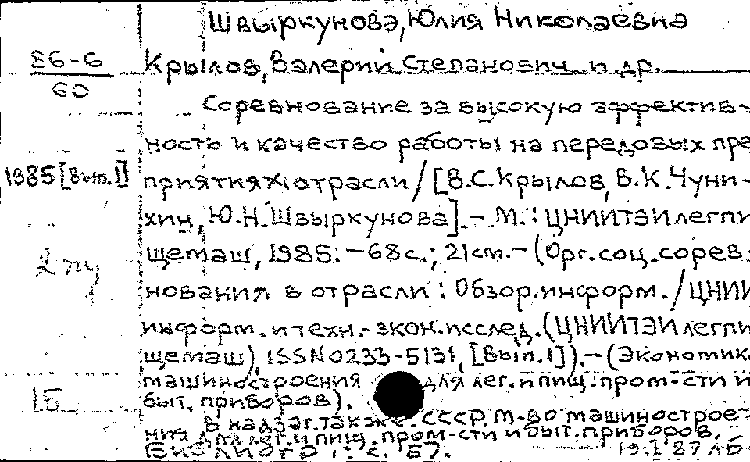 Швыркунова, Юлия Николаевна
86-6
60
Крылов, Валерий Степанович и др.
Соревнование за высокую эффектив-
ность и качество работы на передовых пре
1985 [Вып.1]
приятиях отрасли / [В.С. Крылов, В.К. Чуни-
хин, Ю.Н. Швыркунова]. - М. : ЦНИИТЭИлегпи
щемаш, 1985. - 68 с. ; 21 см. - (Орг. соц. сорев-
нования в отрасли : Обзор. информ. / ЦНИИ
информ. и техн.-экон. исслед. (ЦНИИТЭИлегпи
щемаш), ISSN 0233-5131, [Вып.1]). - (Экономика
машиностроения для лег. и пищ. пром-сти и
быт. приборов).
В надзаг. также: СССР. М-во машинострое-
ния для лег. и пищ. пром-сти и быт. приборов.
Библиогр.: с. 67.